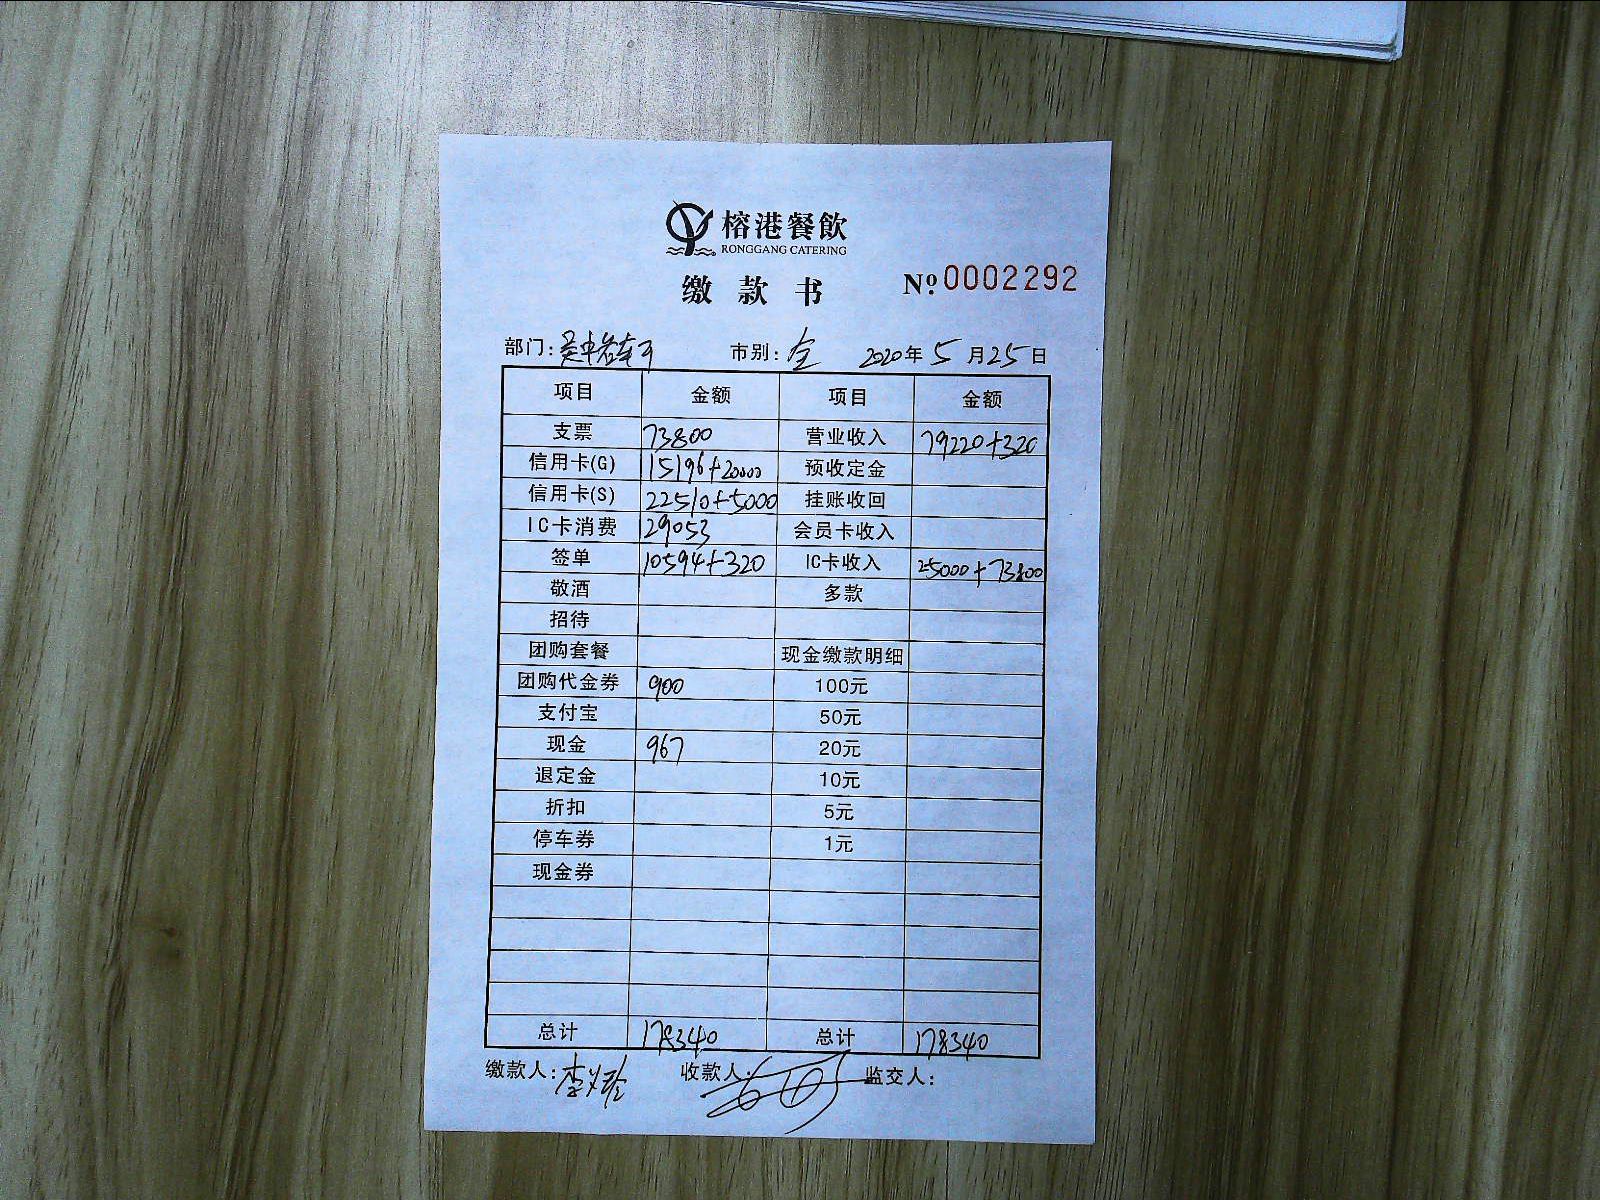 榕港餐飲
RONGGANG CATERING
缴款书 № 0002292
部门: 市别: 全 2020年 5 月 25 日
项目 金额 项目 金额
支票 73800 营业收入 79220+320
信用卡(G) 15196+20000 预收定金
信用卡(S) 22510+5000 挂账收回
IC卡消费 29053 会员卡收入
签单 10594+320 IC卡收入 25000+73800
敬酒 多款
招待
团购套餐 现金缴款明细
团购代金券 900 100元
支付宝 50元
现金 967 20元
退定金 10元
折扣 5元
停车券 1元
现金券
总计 178340 总计 178340
缴款人: 李 收款人: 监交人: